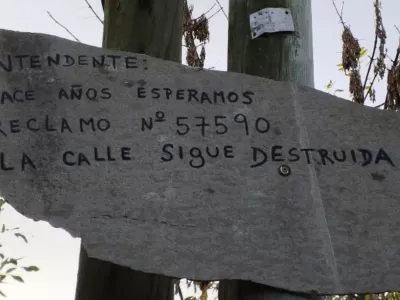 NTENDENTE:
ACE AÑOS ESPERAMOS
RECLAMO Nº 57590
LA CALLE SIGUE DESTRUIDA